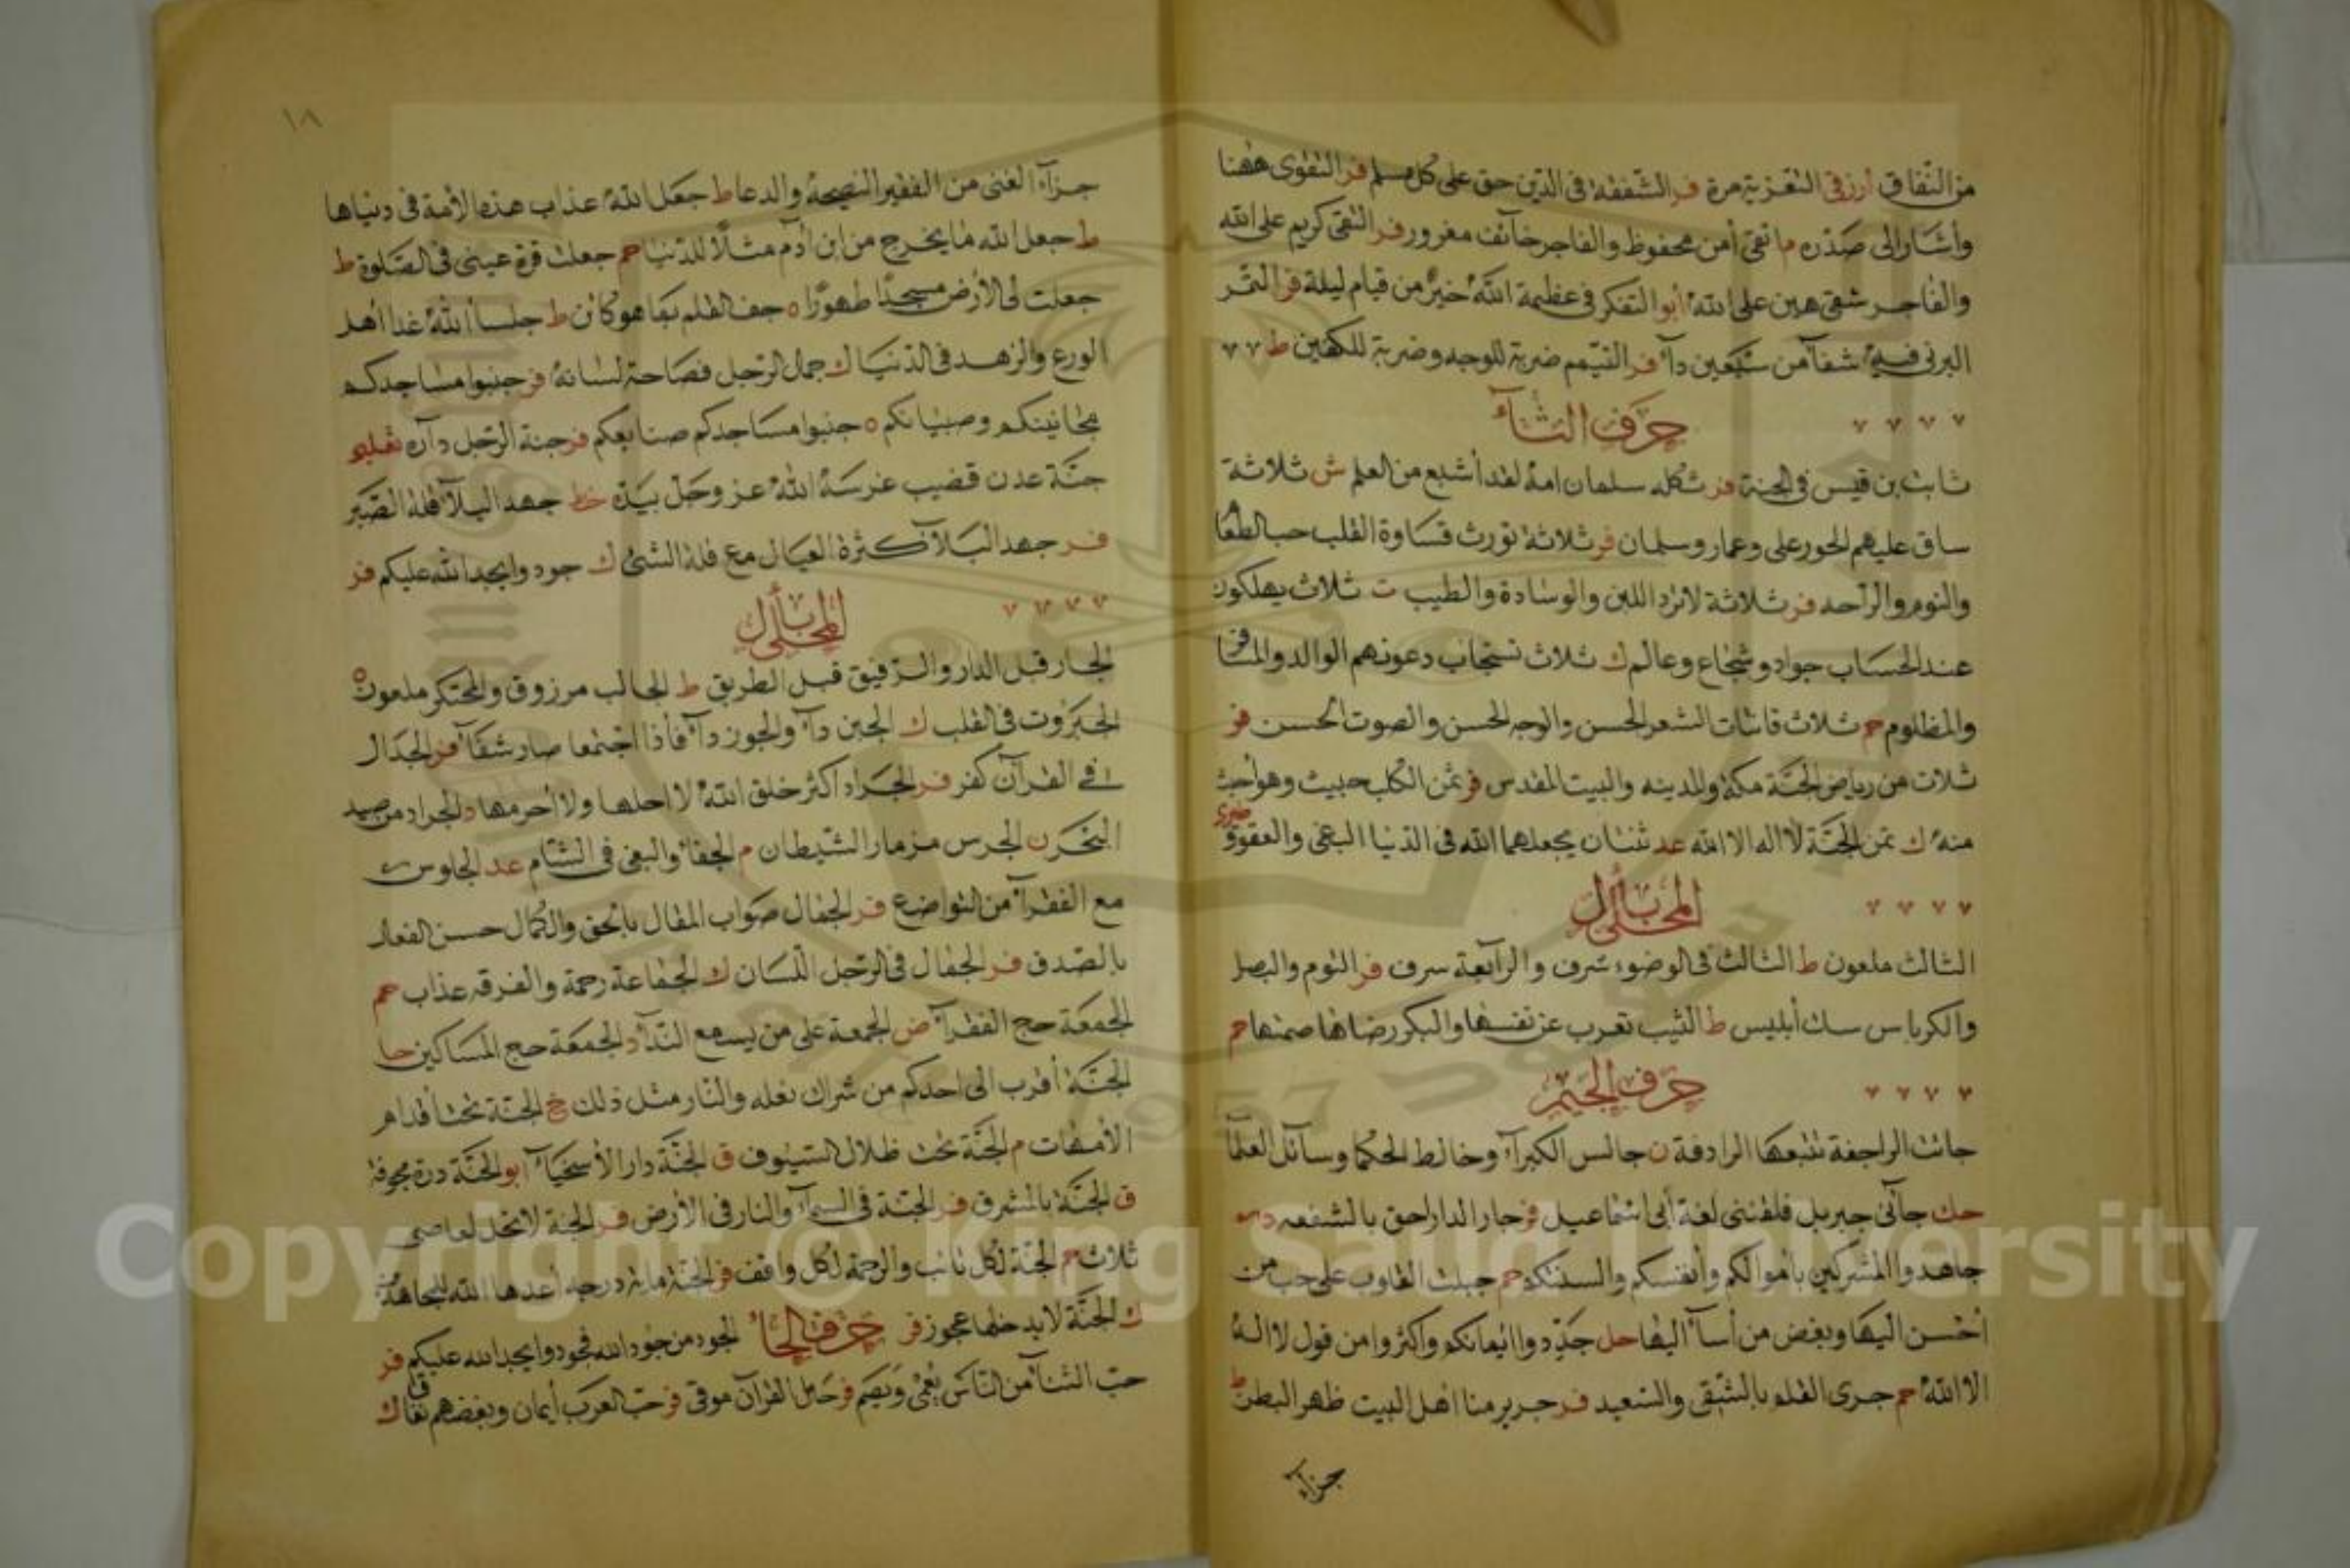 من النفاق أرزق التعزية مرة فر الشفقة فى الدين حق على كل مسلم فر التقوى ههنا
وأشار الى صدره م اتقى أمن محفوظ والفاجر خآئف مغرور فر التقى كريم على الله
والفاجر شقى هين على الله أبو التفكر فى عظمة الله خير من قيام ليلة فر التمر
البرنى فيه شفآ من سبعين دآء فر التيمم ضربة للوجه وضربة للكفين ط
حرف الثآء
ثابت بن قيس فى الجنة فر ثكلة سلمان امه لقد أشبع من العلم ش ثلاثة
ساق عليهم الحور على وعمار وسلمان فر ثلاثة تورث قساوة القلب حب الطعا
والنوم والراحه فر ثلاثة لا ترد اللبن والوسادة والطيب ت ثلاث يهلكون
عند الحساب جواد وشجاع وعالم ك ثلاث تستجاب دعوتهم الوالد والمسافر
والمظلوم حم ثلاث فاتنات الشعر الحسن والوجه الحسن والصوت الحسن فر
ثلاث من رياض الجنة مكة والمدينه والبيت المقدس فر ثمن الكلب خبيث وهو أخبث
منه ك ثمن الجنة لا اله الا الله عد ثنتان يجعلهما الله فى الدنيا البغى والعقوق
المحلى بأل
الثالث ملعون ط الثالث فى الوضوء شرف والرآبعة سرف فر الثوم والبصل
والكرباس سك أبليس ط الثيب تعرب عن نفسها والبكر رضاها صمتها حم
حرف الجيم
جائت الراجفة تتبعها الرادفة ن جالس الكبرآء وخالط الحكما وسآئل العلمآ
حك جآئى جبريل فلقننى لغة أبى اسماعيل فر جار الدار احق بالشفعه
جاهدوا المشركين باموالكم وأنفسكم والسنتكم حم جبلت القلوب على حب من
أحسن اليها وبغض من أسآء اليها حل جددوا ايمانكم واكثروا من قول لا اله
الا الله حم جرى القلم بالشقى والسعيد فر جرير منا اهل البيت ظهر البطن ط
جزآء
١٨
جزآء الغنى من الفقير النصيحة والدعا ط جعل الله عذاب هذه الأمة فى دنياها
ط جعل الله ما يخرج من ابن أدم مثلا للدنيا حم جعلت قرة عينى فى الصلوة ط
جعلت لى الأرض مسجدا طهورا ه جف القلم بما هو كائن ط جلسآ الله غدا أهل
الورع والزهد فى الدنيا ك جمال الرجل فصاحة لسانه فر جنبوا مساجدكم
مجانينكم وصبيانكم ه جنبوا مساجدكم صنايعكم فر جنة الرجل دآره
جنة عدن قضيب غرسه الله عز وجل بيده خط جهد البلآء قلة الصبر
فر جهد البلآء كثرة العيال مع قلة الشئ ك جودوا يجد الله عليكم فر
المحلى بأل
الجار قبل الدار والرفيق قبل الطريق ط الجالب مرزوق والمحتكر ملعون ه
الجبروت فى القلب ك الجبن دآء والجوز دآء فأذا اجتمعا صار شفآء فر الجدال
فى القرآن كفر فر الجراد اكثر خلق الله لا احلها ولا احرمها د الجراد من صيد
البحر ن الجرس مزمار الشيطان م الجفآء والبغى فى الشآم عد الجلوس
مع الفقرآء من التواضع فر الجمال صواب المقال بالحق والكمال حسن الفعال
بالصدق فر الجمال فى الرجل اللسان ك الجماعة رحمة والفرقه عذاب حم
الجمعة حج الفقرآء ض الجمعة على من يسمع الندآء د الجمعة حج المساكين حا
الجنة أقرب الى احدكم من شراك نعله والنار مثل ذلك خ الجنة تحت أقدام
الأمهات م الجنة تحت ظلال السيوف ق الجنة دار الأسخيآء أبو الجنة درة مجوفة
ق الجنة بالمشرق فر الجنة فى السمآء والنار فى الأرض فر الجنة لا تحل لعاصى
ثلاث حم الجنة لكل تائب والرحمة لكل واقف فر الجنة مائة درجه أعدها الله للمجاهد
ك الجنة لا يدخلها عجوز فر الجود من جود الله فجودوا يجد الله عليكم فر حرف الحآء
حب الثنآء من الناس يعمى ويصم فر حامل القرآن موقى فر حب العرب أيمان وبغضهم نفاق ك